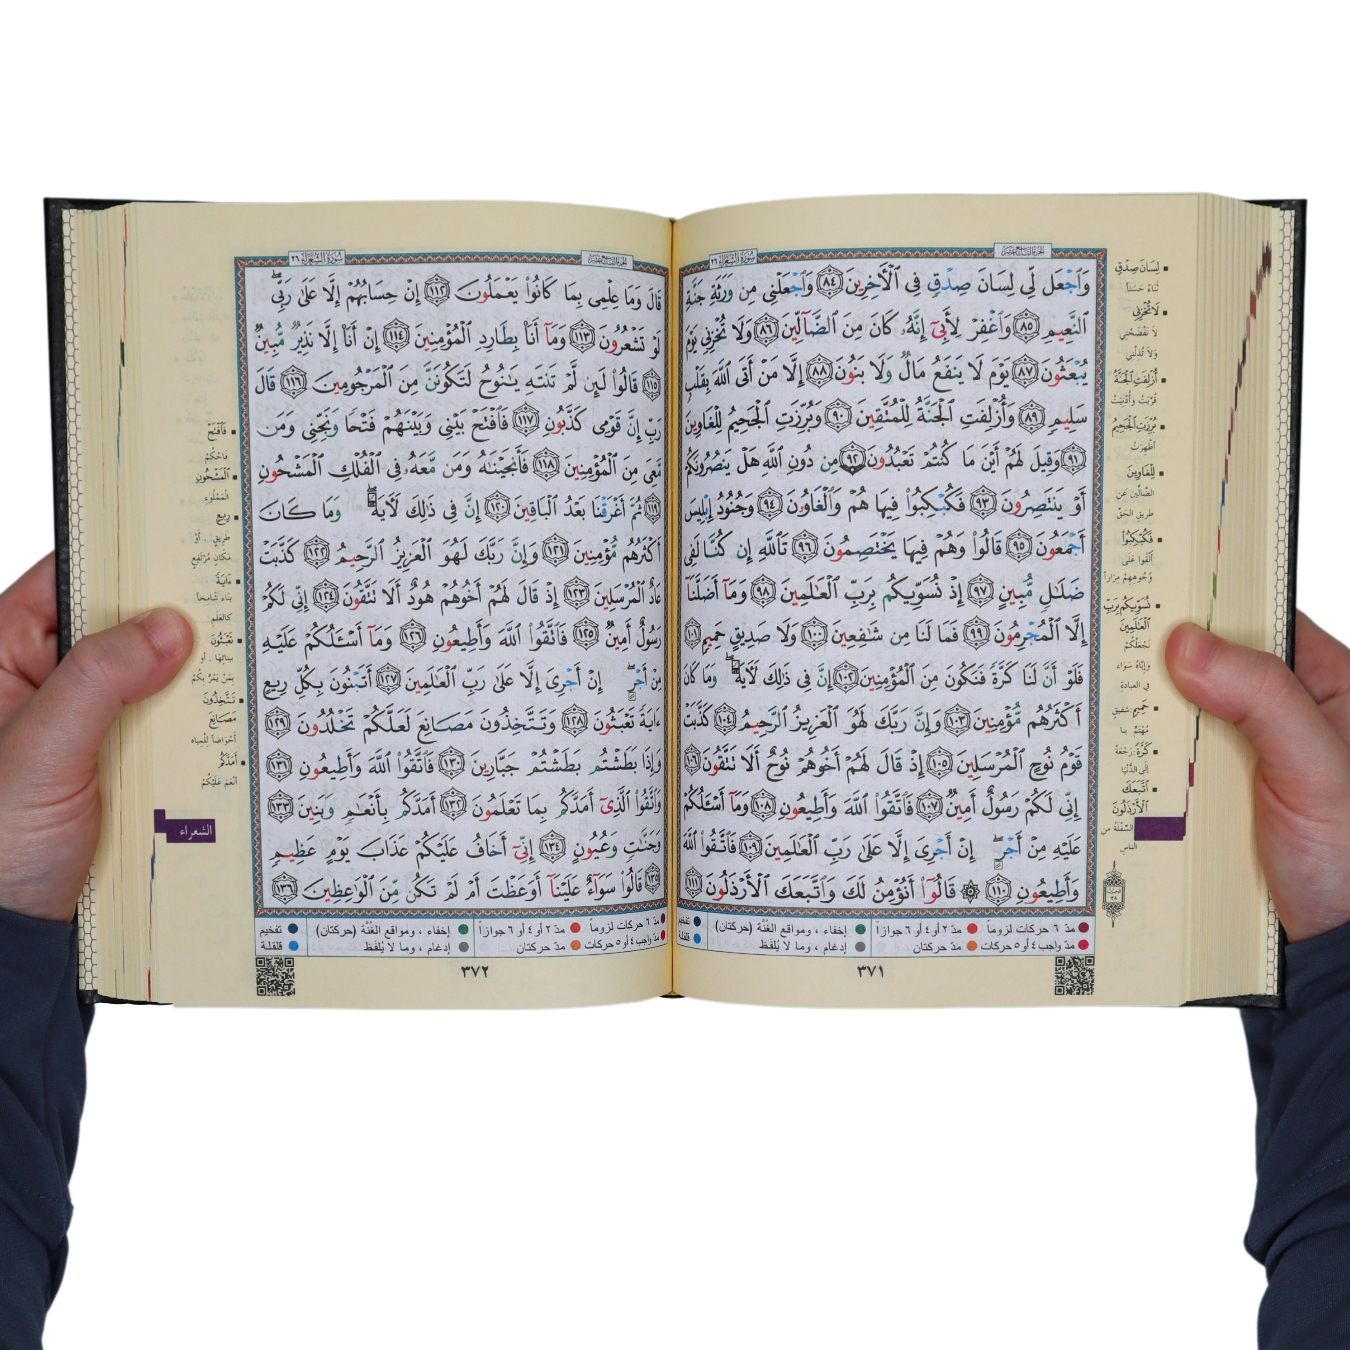 سُورَةُ الشُّعَرَاءِ ٢٦
الجزء التاسع عشر
وَٱجْعَل لِّى لِسَانَ صِدْقٍ فِى ٱلْأَخِرِينَ ٨٤ وَٱجْعَلْنِى مِن وَرَثَةِ جَنَّةِ
ٱلنَّعِيمِ ٨٥ وَٱغْفِرْ لِأَبِىٓ إِنَّهُۥ كَانَ مِنَ ٱلضَّآلِّينَ ٨٦ وَلَا تُخْزِنِى يَوْمَ
يُبْعَثُونَ ٨٧ يَوْمَ لَا يَنفَعُ مَالٌ وَلَا بَنُونَ ٨٨ إِلَّا مَنْ أَتَى ٱللَّهَ بِقَلْبٍ
سَلِيمٍ ٨٩ وَأُزْلِفَتِ ٱلْجَنَّةُ لِلْمُتَّقِينَ ٩٠ وَبُرِّزَتِ ٱلْجَحِيمُ لِلْغَاوِينَ
٩١ وَقِيلَ لَهُمْ أَيْنَ مَا كُنتُمْ تَعْبُدُونَ ٩٢ مِن دُونِ ٱللَّهِ هَلْ يَنصُرُونَكُمْ
أَوْ يَنتَصِرُونَ ٩٣ فَكُبْكِبُوا۟ فِيهَا هُمْ وَٱلْغَاوُۥنَ ٩٤ وَجُنُودُ إِبْلِيسَ
أَجْمَعُونَ ٩٥ قَالُوا۟ وَهُمْ فِيهَا يَخْتَصِمُونَ ٩٦ تَٱللَّهِ إِن كُنَّا لَفِى
ضَلَٰلٍ مُّبِينٍ ٩٧ إِذْ نُسَوِّيكُم بِرَبِّ ٱلْعَٰلَمِينَ ٩٨ وَمَآ أَضَلَّنَآ
إِلَّا ٱلْمُجْرِمُونَ ٩٩ فَمَا لَنَا مِن شَٰفِعِينَ ١٠٠ وَلَا صَدِيقٍ حَمِيمٍ ١٠١
فَلَوْ أَنَّ لَنَا كَرَّةً فَنَكُونَ مِنَ ٱلْمُؤْمِنِينَ ١٠٢ إِنَّ فِى ذَٰلِكَ لَأَيَةً ۖ وَمَا كَانَ
أَكْثَرُهُم مُّؤْمِنِينَ ١٠٣ وَإِنَّ رَبَّكَ لَهُوَ ٱلْعَزِيزُ ٱلرَّحِيمُ ١٠٤ كَذَّبَتْ
قَوْمُ نُوحٍ ٱلْمُرْسَلِينَ ١٠٥ إِذْ قَالَ لَهُمْ أَخُوهُمْ نُوحٌ أَلَا تَتَّقُونَ ١٠٦
إِنِّى لَكُمْ رَسُولٌ أَمِينٌ ١٠٧ فَٱتَّقُوا۟ ٱللَّهَ وَأَطِيعُونِ ١٠٨ وَمَآ أَسْـَٔلُكُمْ
عَلَيْهِ مِنْ أَجْرٍ ۖ إِنْ أَجْرِىَ إِلَّا عَلَىٰ رَبِّ ٱلْعَٰلَمِينَ ١٠٩ فَٱتَّقُوا۟ ٱللَّهَ
وَأَطِيعُونِ ١١٠ ۞ قَالُوٓا۟ أَنُؤْمِنُ لَكَ وَٱتَّبَعَكَ ٱلْأَرْذَلُونَ ١١١
لِسَانَ صِدْقٍ
ثَنَاءً حَسَناً
لَا تُخْزِنِى
لَا تَفْضَحْنِي
وَلَا تُذِلَّنِي
أُزْلِفَتِ ٱلْجَنَّةُ
قُرِّبَتْ وأُدْنِيَتْ
بُرِّزَتِ ٱلْجَحِيمُ
أُظْهِرَتْ
لِلْغَاوِينَ
الضَّالِّينَ عَنْ
طريقِ الحَقِّ
فَكُبْكِبُوا۟
أُلْقُوا على
وُجُوهِهِمْ مِرَاراً
نُسَوِّيكُم بِرَبِّ
ٱلْعَٰلَمِينَ
نَجْعَلُكُمْ
وإيَّاهُ سَوَاء
في العبادةِ
حَمِيمٍ شفيقٍ
مُهْتَمٍّ بنا
كَرَّةً رَجْعَةً
إلى الدُّنْيَا
ٱتَّبَعَكَ
ٱلْأَرْذَلُونَ
السَّفَلَةُ من
الناس
مدّ ٦ حركات لزوماً مدّ ٢ أو ٤ أو ٦ جوازاً إخفاء ، ومواقع الغُنَّة (حركتان) تفخيم
مدّ واجب ٤ أو ٥ حركات مدّ حركتان إدغام ، وما لا يُلفَظ قلقلة
٣٧١
سُورَةُ الشُّعَرَاءِ ٢٦
الجزء التاسع عشر
قَالَ وَمَا عِلْمِى بِمَا كَانُوا۟ يَعْمَلُونَ ١١٢ إِنْ حِسَابُهُمْ إِلَّا عَلَىٰ رَبِّى ۖ
لَوْ تَشْعُرُونَ ١١٣ وَمَآ أَنَا۠ بِطَارِدِ ٱلْمُؤْمِنِينَ ١١٤ إِنْ أَنَا۠ إِلَّا نَذِيرٌ مُّبِينٌ
١١٥ قَالُوا۟ لَئِن لَّمْ تَنتَهِ يَٰنُوحُ لَتَكُونَنَّ مِنَ ٱلْمَرْجُومِينَ ١١٦ قَالَ
رَبِّ إِنَّ قَوْمِى كَذَّبُونِ ١١٧ فَٱفْتَحْ بَيْنِى وَبَيْنَهُمْ فَتْحًا وَنَجِّنِى وَمَن
مَّعِىَ مِنَ ٱلْمُؤْمِنِينَ ١١٨ فَأَنجَيْنَٰهُ وَمَن مَّعَهُۥ فِى ٱلْفُلْكِ ٱلْمَشْحُونِ
١١٩ ثُمَّ أَغْرَقْنَا بَعْدُ ٱلْبَاقِينَ ١٢٠ إِنَّ فِى ذَٰلِكَ لَأَيَةً ۖ وَمَا كَانَ
أَكْثَرُهُم مُّؤْمِنِينَ ١٢١ وَإِنَّ رَبَّكَ لَهُوَ ٱلْعَزِيزُ ٱلرَّحِيمُ ١٢٢ كَذَّبَتْ
عَادٌ ٱلْمُرْسَلِينَ ١٢٣ إِذْ قَالَ لَهُمْ أَخُوهُمْ هُودٌ أَلَا تَتَّقُونَ ١٢٤ إِنِّى لَكُمْ
رَسُولٌ أَمِينٌ ١٢٥ فَٱتَّقُوا۟ ٱللَّهَ وَأَطِيعُونِ ١٢٦ وَمَآ أَسْـَٔلُكُمْ عَلَيْهِ
مِنْ أَجْرٍ ۖ إِنْ أَجْرِىَ إِلَّا عَلَىٰ رَبِّ ٱلْعَٰلَمِينَ ١٢٧ أَتَبْنُونَ بِكُلِّ رِيعٍ
ءَايَةً تَعْبَثُونَ ١٢٨ وَتَتَّخِذُونَ مَصَانِعَ لَعَلَّكُمْ تَخْلُدُونَ ١٢٩
وَإِذَا بَطَشْتُم بَطَشْتُمْ جَبَّارِينَ ١٣٠ فَٱتَّقُوا۟ ٱللَّهَ وَأَطِيعُونِ ١٣١
وَٱتَّقُوا۟ ٱلَّذِىٓ أَمَدَّكُم بِمَا تَعْلَمُونَ ١٣٢ أَمَدَّكُم بِأَنْعَٰمٍ وَبَنِينَ ١٣٣
وَجَنَّٰتٍ وَعُيُونٍ ١٣٤ إِنِّىٓ أَخَافُ عَلَيْكُمْ عَذَابَ يَوْمٍ عَظِيمٍ
١٣٥ قَالُوا۟ سَوَآءٌ عَلَيْنَآ أَوَعَظْتَ أَمْ لَمْ تَكُن مِّنَ ٱلْوَٰعِظِينَ ١٣٦
فَٱفْتَحْ
فَاحْكُمْ
ٱلْمَشْحُونِ
المَمْلُوءِ
رِيعٍ
طريقٍ . أوْ
مَكانٍ مُرْتَفِعٍ
ءَايَةً
بِنَاءً شَامِخاً
كالعَلَمِ
تَعْبَثُونَ
بِبِنَائِهَا . أو
بِمَنْ يَمُرُّ بِكُمْ
تَتَّخِذُونَ
مَصَانِعَ
أَحْوَاضاً لِلْمِياه
أَمَدَّكُم
أَنْعَمَ عَلَيْكُمْ
الشعراء
مدّ ٦ حركات لزوماً مدّ ٢ أو ٤ أو ٦ جوازاً إخفاء ، ومواقع الغُنَّة (حركتان) تفخيم
مدّ واجب ٤ أو ٥ حركات مدّ حركتان إدغام ، وما لا يُلفَظ قلقلة
٣٧٢